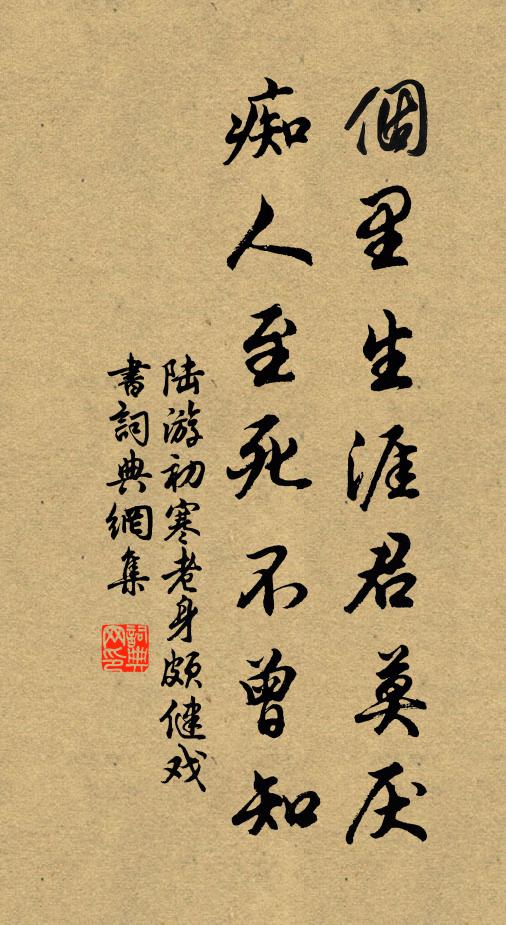 個里生涯君莫厌
痴人至死不曾知
陆游初寒老身颇健戏
書詞典網集
詞典网印